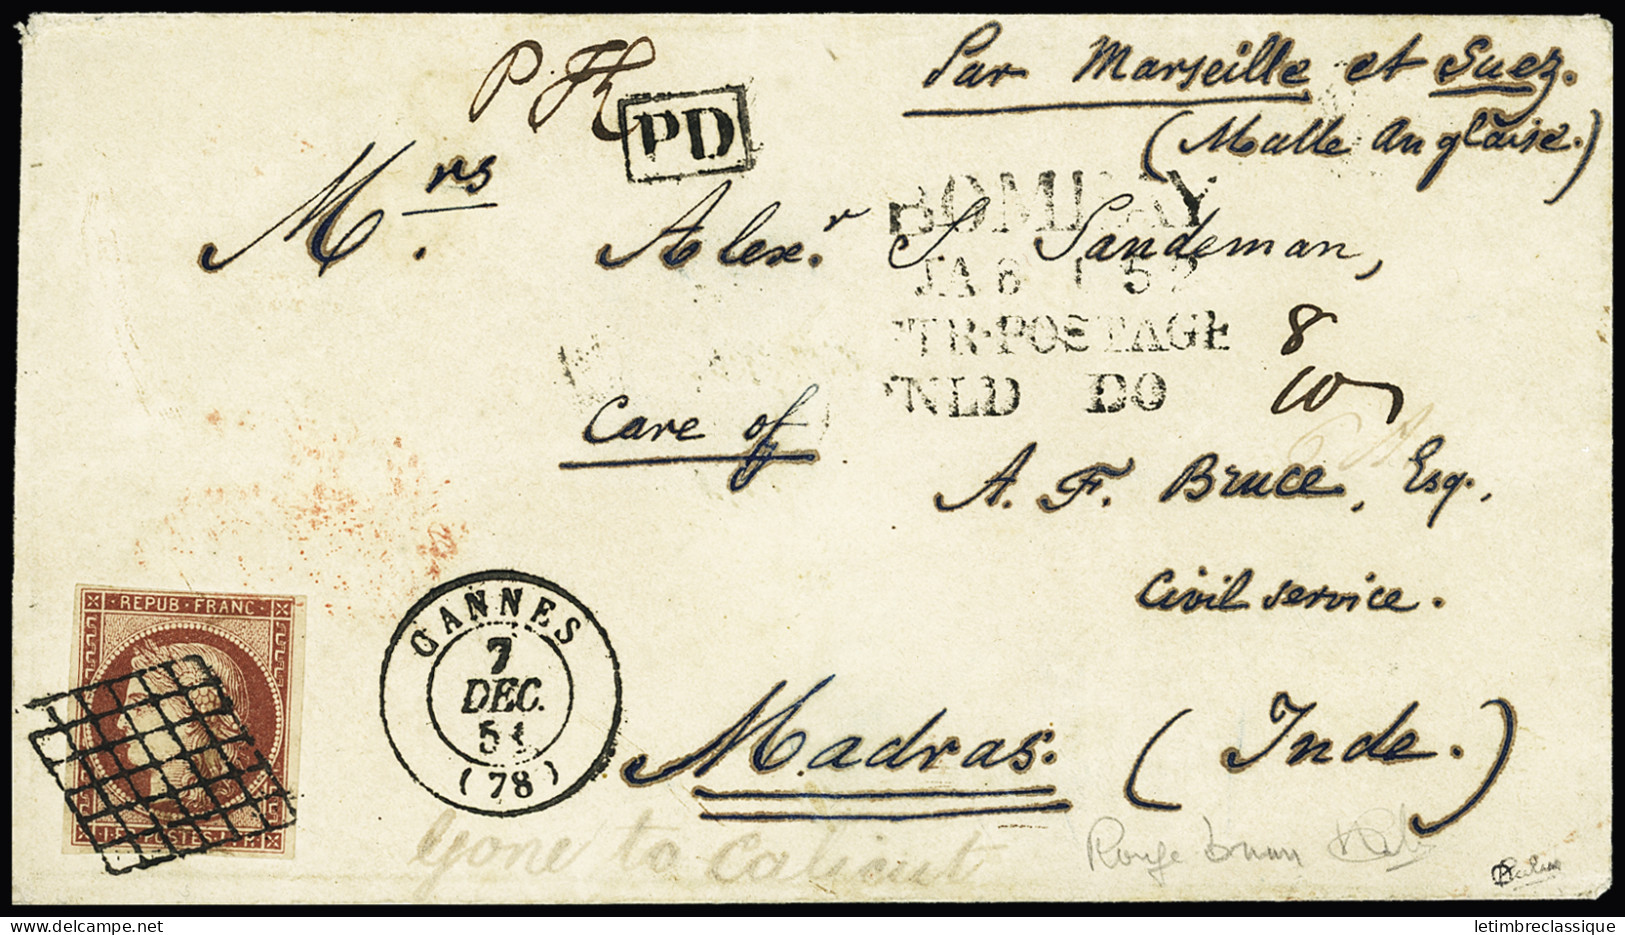 Par Marseille et Suez.
(Malle Anglaise.)
PD
Mrs. Alexr. S. Sandeman,
BOMBAY
JA 8 1 52
TR-POSTAGE 8
NLD DO 10
Care of
A. F. Bruce, Esq.,
Civil service.
Madras. (Inde.)
REPUB·FRANC·
1·F·POSTES·1·F·
CANNES
7
DEC.
51
(78)
Gone to Calicut
Rouge brun
delcampe.net
letimbreclassique